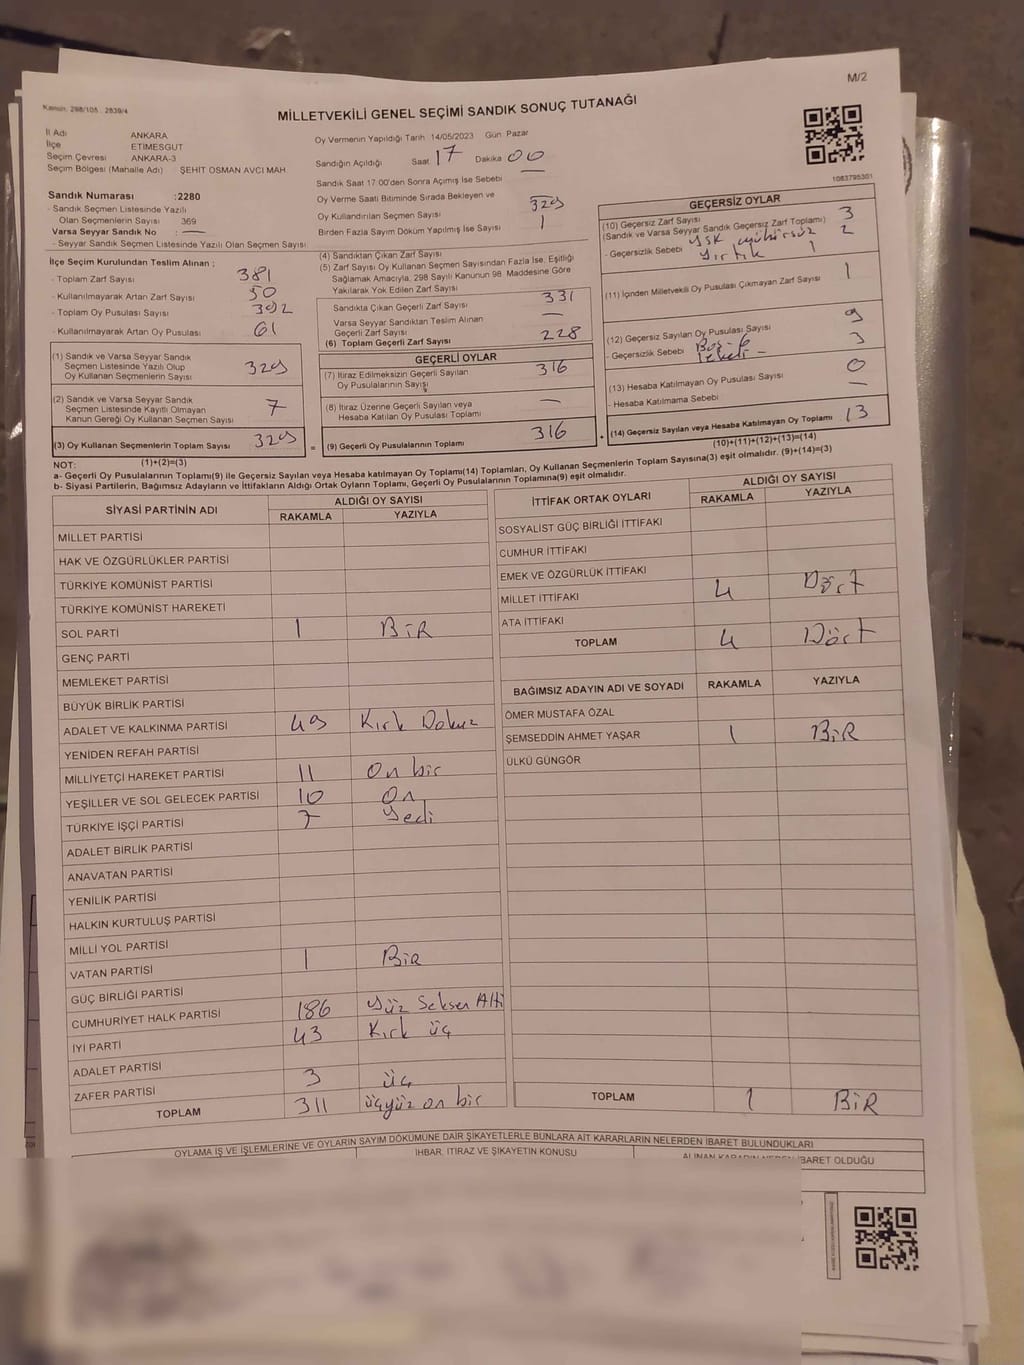 M/2
Kanun: 298/105 . 2839/4
MİLLETVEKİLİ GENEL SEÇİMİ SANDIK SONUÇ TUTANAĞI
İl Adı ANKARA
İlçe ETİMESGUT
Seçim Çevresi ANKARA-3
Seçim Bölgesi (Mahalle Adı) : ŞEHİT OSMAN AVCI MAH.
Sandık Numarası :2280
- Sandık Seçmen Listesinde Yazılı
Olan Seçmenlerin Sayısı 369
Varsa Seyyar Sandık No : —
- Seyyar Sandık Seçmen Listesinde Yazılı Olan Seçmen Sayısı
İlçe Seçim Kurulundan Teslim Alınan ;
- Toplam Zarf Sayısı 381
- Kullanılmayarak Artan Zarf Sayısı 50
- Toplam Oy Pusulası Sayısı 392
- Kullanılmayarak Artan Oy Pusulası 61
(1) Sandık ve Varsa Seyyar Sandık
Seçmen Listesinde Yazılı Olup
Oy Kullanan Seçmenlerin Sayısı 329
(2) Sandık ve Varsa Seyyar Sandık
Seçmen Listesinde Kayıtlı Olmayan
Kanun Gereği Oy Kullanan Seçmen Sayısı 7
(3) Oy Kullanan Seçmenlerin Toplam Sayısı 329
(1)+(2)=(3)
Oy Vermenin Yapıldığı Tarih 14/05/2023 Gün Pazar
Sandığın Açıldığı Saat 17 Dakika 00
Sandık Saat 17:00'den Sonra Açımış İse Sebebi —
Oy Verme Saati Bitiminde Sırada Bekleyen ve
Oy Kullandırılan Seçmen Sayısı 329
Birden Fazla Sayım Döküm Yapılmış İse Sayısı 1
(4) Sandıktan Çıkan Zarf Sayısı
(5) Zarf Sayısı Oy Kullanan Seçmen Sayısından Fazla İse, Eşitliği
Sağlamak Amacıyla, 298 Sayılı Kanunun 98. Maddesine Göre
Yakılarak Yok Edilen Zarf Sayısı
Sandıkta Çıkan Geçerli Zarf Sayısı 331
Varsa Seyyar Sandıktan Teslim Alınan
Geçerli Zarf Sayısı —
(6) Toplam Geçerli Zarf Sayısı 228
GEÇERLİ OYLAR
(7) İtiraz Edilmeksizin Geçerli Sayılan
Oy Pusulalarının Sayısı 316
(8) İtiraz Üzerine Geçerli Sayılan veya
Hesaba Katılan Oy Pusulası Toplamı —
= (9) Geçerli Oy Pusulalarının Toplamı 316 +
1083795301
GEÇERSİZ OYLAR
(10) Geçersiz Zarf Sayısı 3
(Sandık ve Varsa Seyyar Sandık Geçersiz Zarf Toplamı)
- Geçersizlik Sebebi YSK mühürsüz 2
Yırtık 1
(11) İçinden Milletvekili Oy Pusulası Çıkmayan Zarf Sayısı 1
(12) Geçersiz Sayılan Oy Pusulası Sayısı 9
- Geçersizlik Sebebi 3
(13) Hesaba Katılmayan Oy Pusulası Sayısı 0
- Hesaba Katılmama Sebebi —
(14) Geçersiz Sayılan veya Hesaba Katılmayan Oy Toplamı 13
(10)+(11)+(12)+(13)=(14)
NOT:
a- Geçerli Oy Pusulalarının Toplamı(9) ile Geçersiz Sayılan veya Hesaba katılmayan Oy Toplamı(14) Toplamları, Oy Kullanan Seçmenlerin Toplam Sayısına(3) eşit olmalıdır. (9)+(14)=(3)
b- Siyasi Partilerin, Bağımsız Adayların ve İttifakların Aldığı Ortak Oyların Toplamı, Geçerli Oy Pusulalarının Toplamına(9) eşit olmalıdır.
SİYASİ PARTİNİN ADI ALDIĞI OY SAYISI
RAKAMLA YAZIYLA
MİLLET PARTİSİ
HAK VE ÖZGÜRLÜKLER PARTİSİ
TÜRKİYE KOMÜNİST PARTİSİ
TÜRKİYE KOMÜNİST HAREKETİ
SOL PARTİ 1 BİR
GENÇ PARTİ
MEMLEKET PARTİSİ
BÜYÜK BİRLİK PARTİSİ
ADALET VE KALKINMA PARTİSİ 49 Kırk Dokuz
YENİDEN REFAH PARTİSİ
MİLLİYETÇİ HAREKET PARTİSİ 11 On bir
YEŞİLLER VE SOL GELECEK PARTİSİ 10 On
TÜRKİYE İŞÇİ PARTİSİ 7 Yedi
ADALET BİRLİK PARTİSİ
ANAVATAN PARTİSİ
YENİLİK PARTİSİ
HALKIN KURTULUŞ PARTİSİ
MİLLİ YOL PARTİSİ
VATAN PARTİSİ 1 Bir
GÜÇ BİRLİĞİ PARTİSİ
CUMHURİYET HALK PARTİSİ 186 Yüz Seksen Altı
İYİ PARTİ 43 Kırk üç
ADALET PARTİSİ
ZAFER PARTİSİ 3 üç
TOPLAM 311 üçyüz on bir
İTTİFAK ORTAK OYLARI ALDIĞI OY SAYISI
RAKAMLA YAZIYLA
SOSYALİST GÜÇ BİRLİĞİ İTTİFAKI
CUMHUR İTTİFAKI
EMEK VE ÖZGÜRLÜK İTTİFAKI
MİLLET İTTİFAKI 4 Dört
ATA İTTİFAKI
TOPLAM 4 Dört
BAĞIMSIZ ADAYIN ADI VE SOYADI RAKAMLA YAZIYLA
ÖMER MUSTAFA ÖZAL
ŞEMSEDDİN AHMET YAŞAR 1 BİR
ÜLKÜ GÜNGÖR
TOPLAM 1 BİR
OYLAMA İŞ VE İŞLEMLERİNE VE OYLARIN SAYIM DÖKÜMÜNE DAİR ŞİKAYETLERLE BUNLARA AİT KARARLARIN NELERDEN İBARET BULUNDUKLARI
İHBAR, İTİRAZ VE ŞİKAYETİN KONUSU
ALINAN KARARIN NEDEN İBARET OLDUĞU